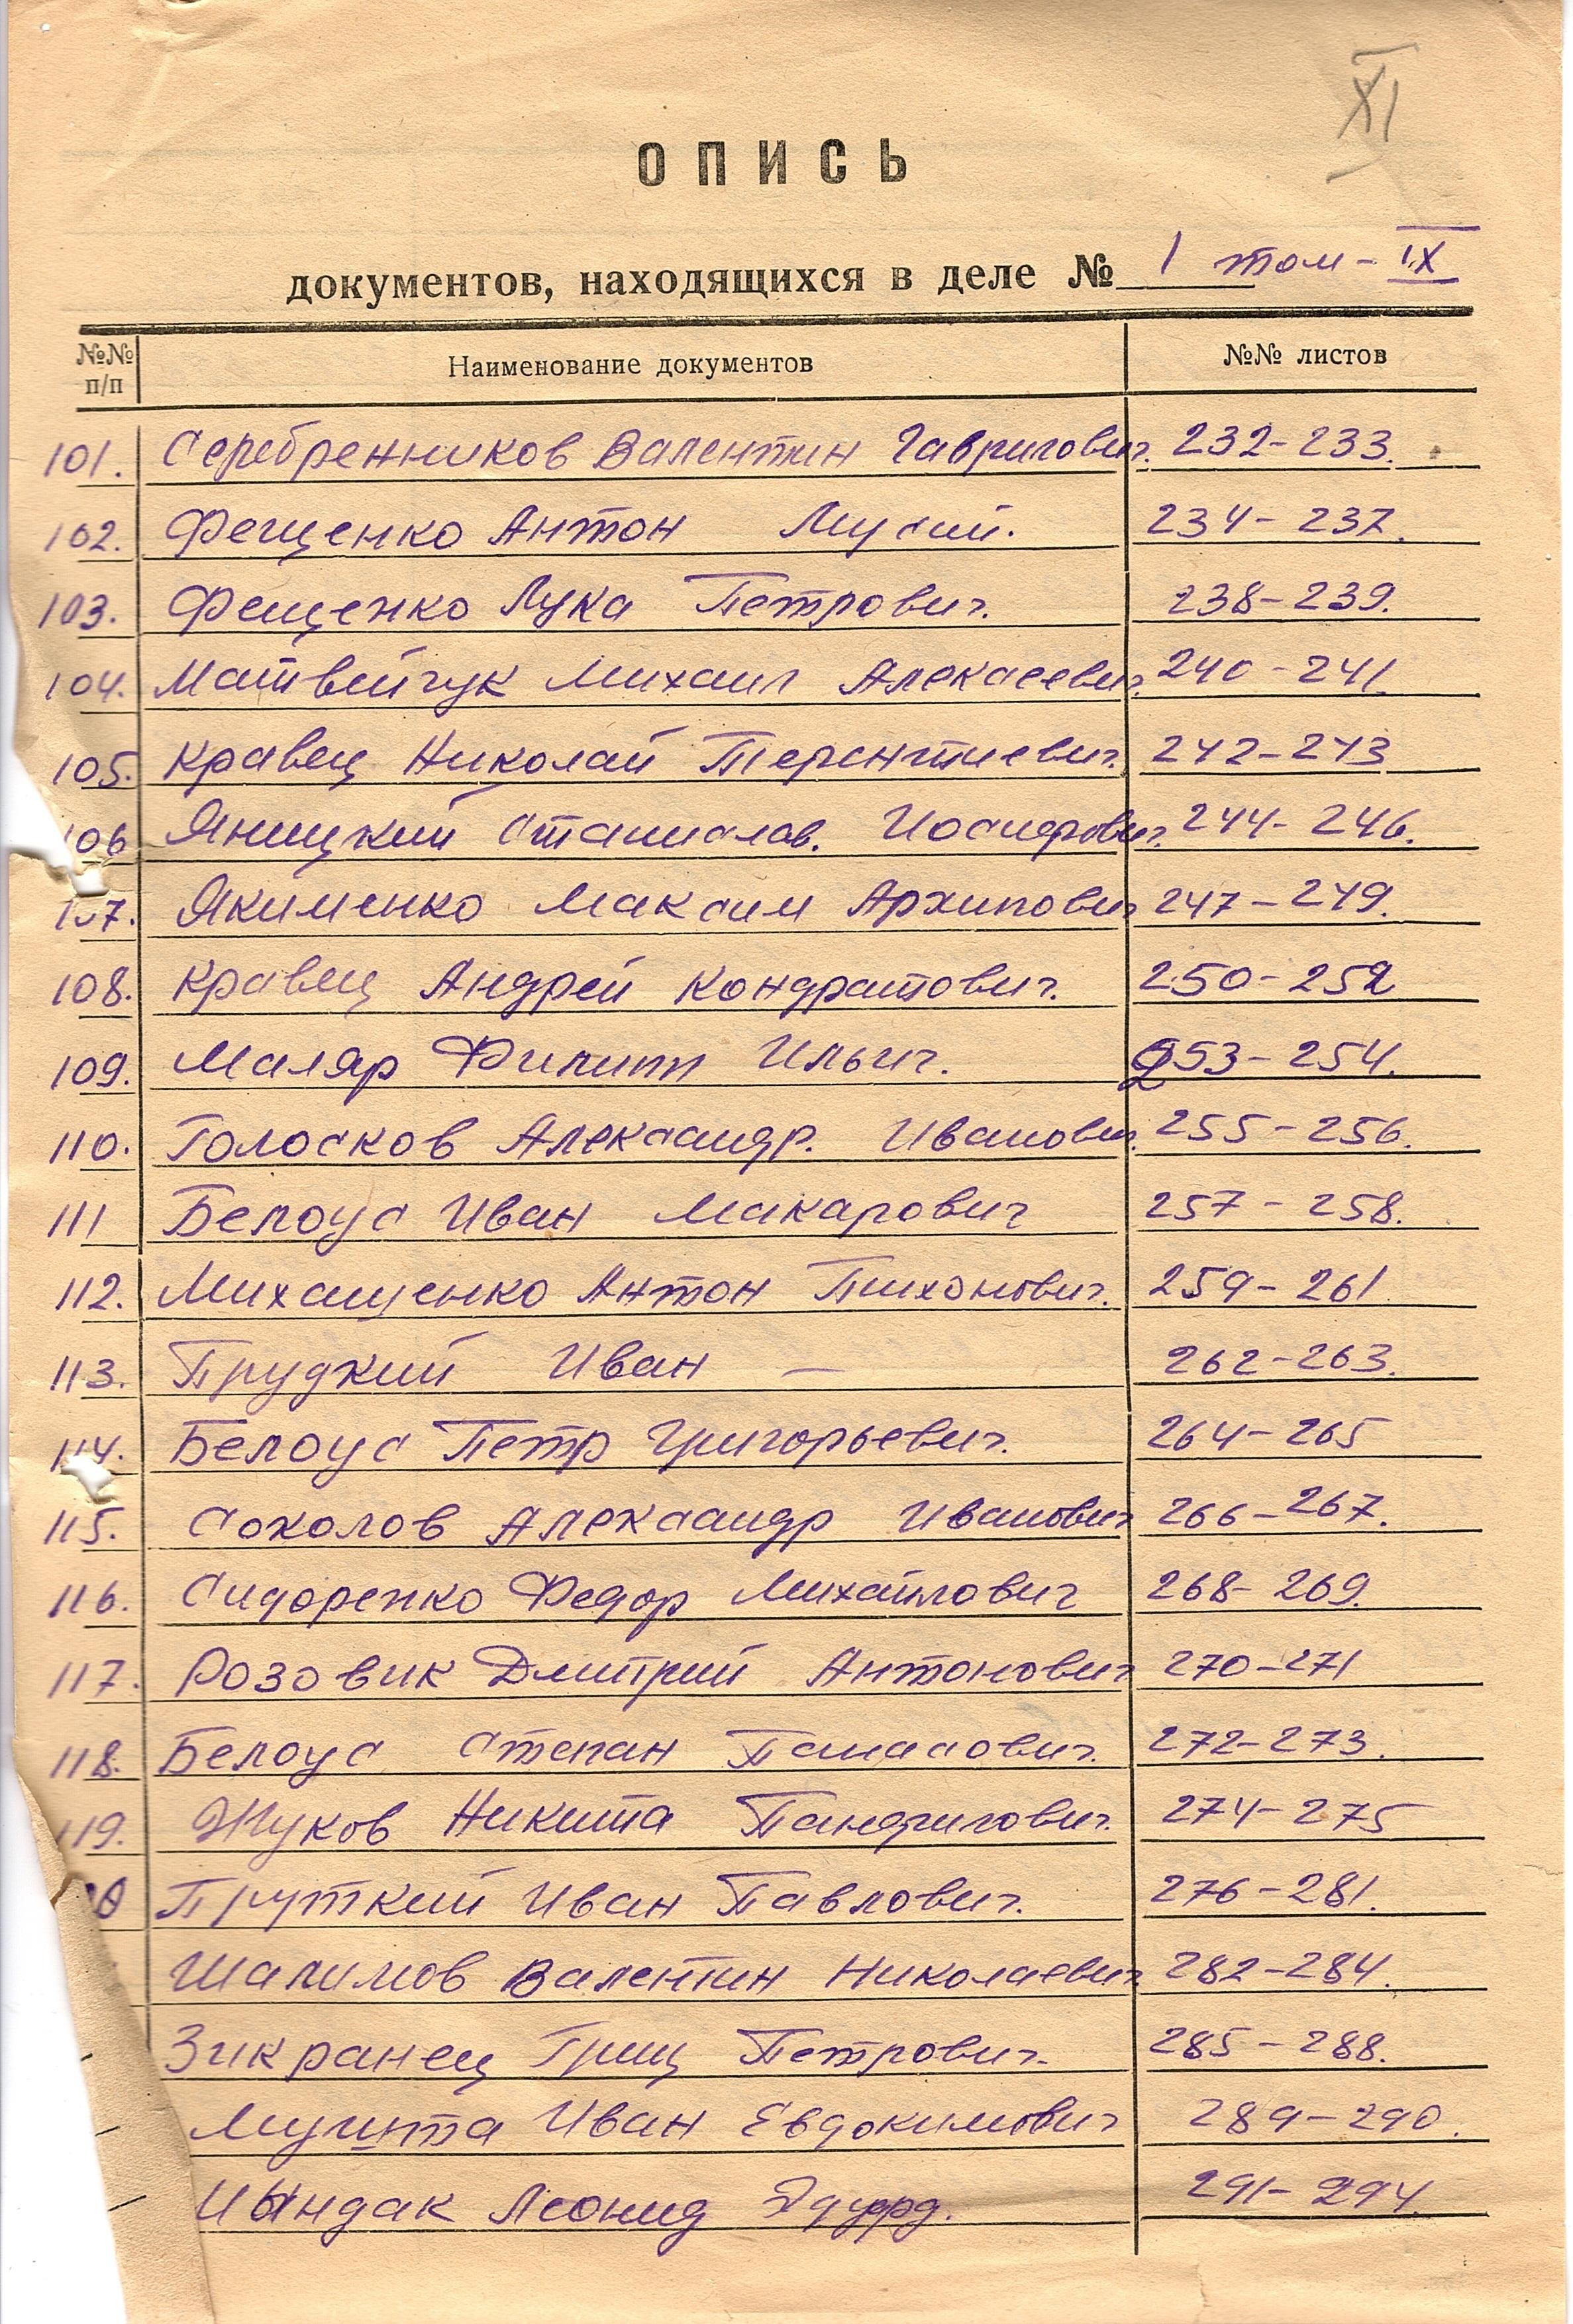 XI
ОПИСЬ
документов, находящихся в деле № 1 том - IX
№№ п/п Наименование документов №№ листов
101. Серебренников Валентин Гаврилович. 232-233.
102. Фещенко Антон Мусий. 234-237.
103. Фещенко Лука Петрович. 238-239.
104. Матвейчук Михаил Алексеевич. 240-241.
105. Кравец Николай Терентиевич. 242-243
106 Яницкий Станислав. Иосифович. 244-246.
107. Якименко Максим Архипович 247-249.
108. Кравец Андрей Кондратович. 250-252
109. Маляр Филипп Ильич. 253-254.
110. Голосков Александр. Иванович. 255-256.
111 Белоус Иван Макарович 257-258.
112. Михащенко Антон Тихонович. 259-261
113. Прудкий Иван — 262-263.
114. Белоус Петр Григорьевич. 264-265
115. Соколов Александр Иванович 266-267.
116. Сидоренко Федор Михайлович 268-269.
117. Розовик Дмитрий Антонович 270-271
118. Белоус Степан Панасович. 272-273.
119. Жуков Никита Панфилович. 274-275
0 Пруткий Иван Павлович. 276-281.
Шалимов Валентин Николаевич 282-284.
Зикранец Гриц Петрович. 285-288.
Иван Евдокимович 289-290.
Цындак Леонид Эдуард. 291-294.